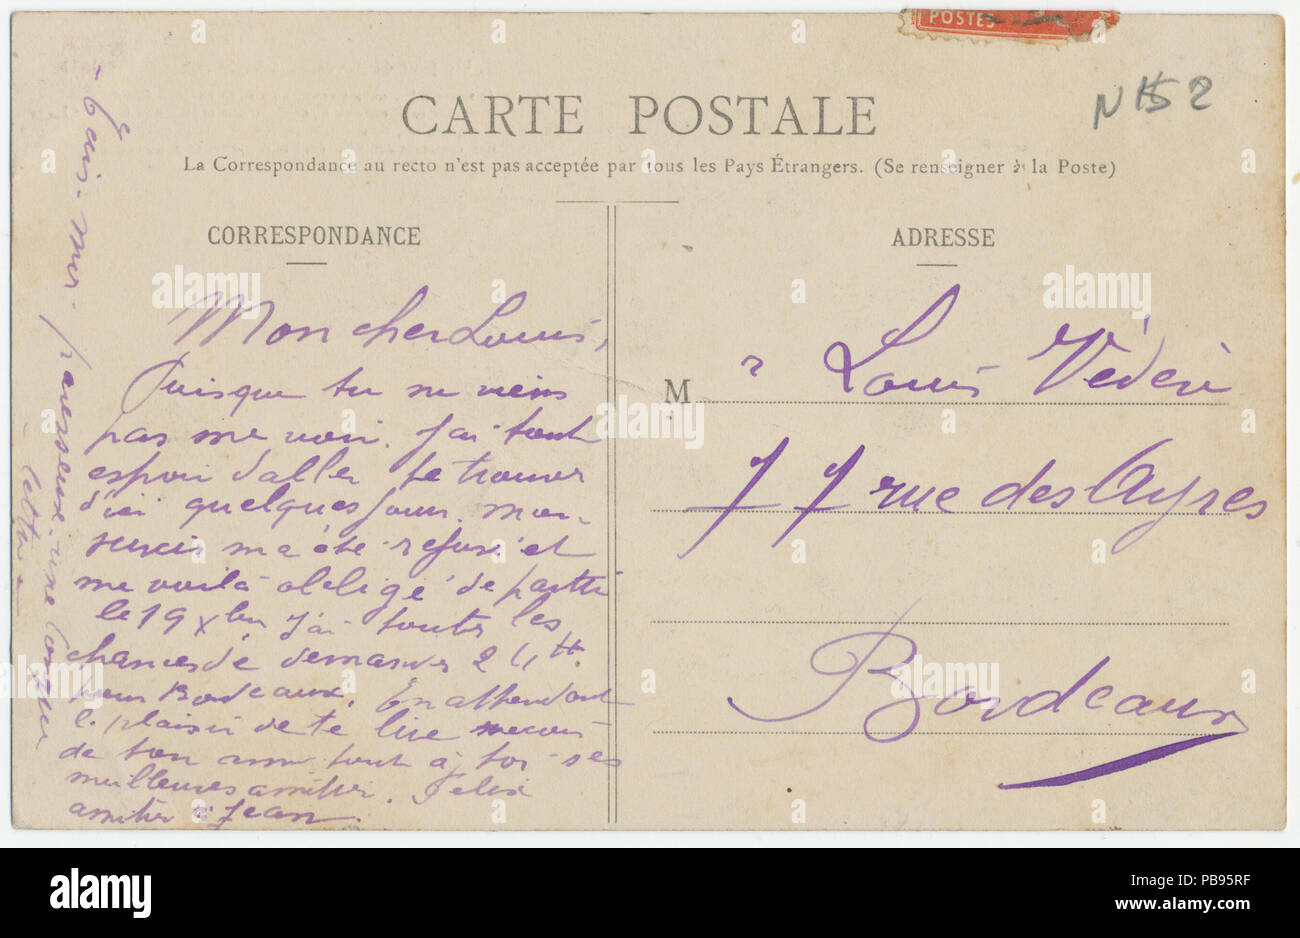 POSTES
N 152
CARTE POSTALE
La Correspondance au recto n'est pas acceptée par tous les Pays Étrangers. (Se renseigner à la Poste)
CORRESPONDANCE
Mon cher Louis,
Puisque tu ne viens
pas me voir. J'ai tout
espoir d'aller te trouver
d'ici quelques jours. Mon
sursis m'a été refusé et
me voilà obligé de partir
le 19 Xbre J'ai toutes les
chances de demander 24h
pour Bordeaux. En attendant
le plaisir de te lire recois
de ton ami tout à toi ses
meilleures amitiés. Félix
amitiés à Jean.
- Ecris-moi paresseux une longue
lettre -
ADRESSE
M r Louis Védère
77 rue des Ayres
Bordeaux
alamy
Image ID: PB95RF
www.alamy.com